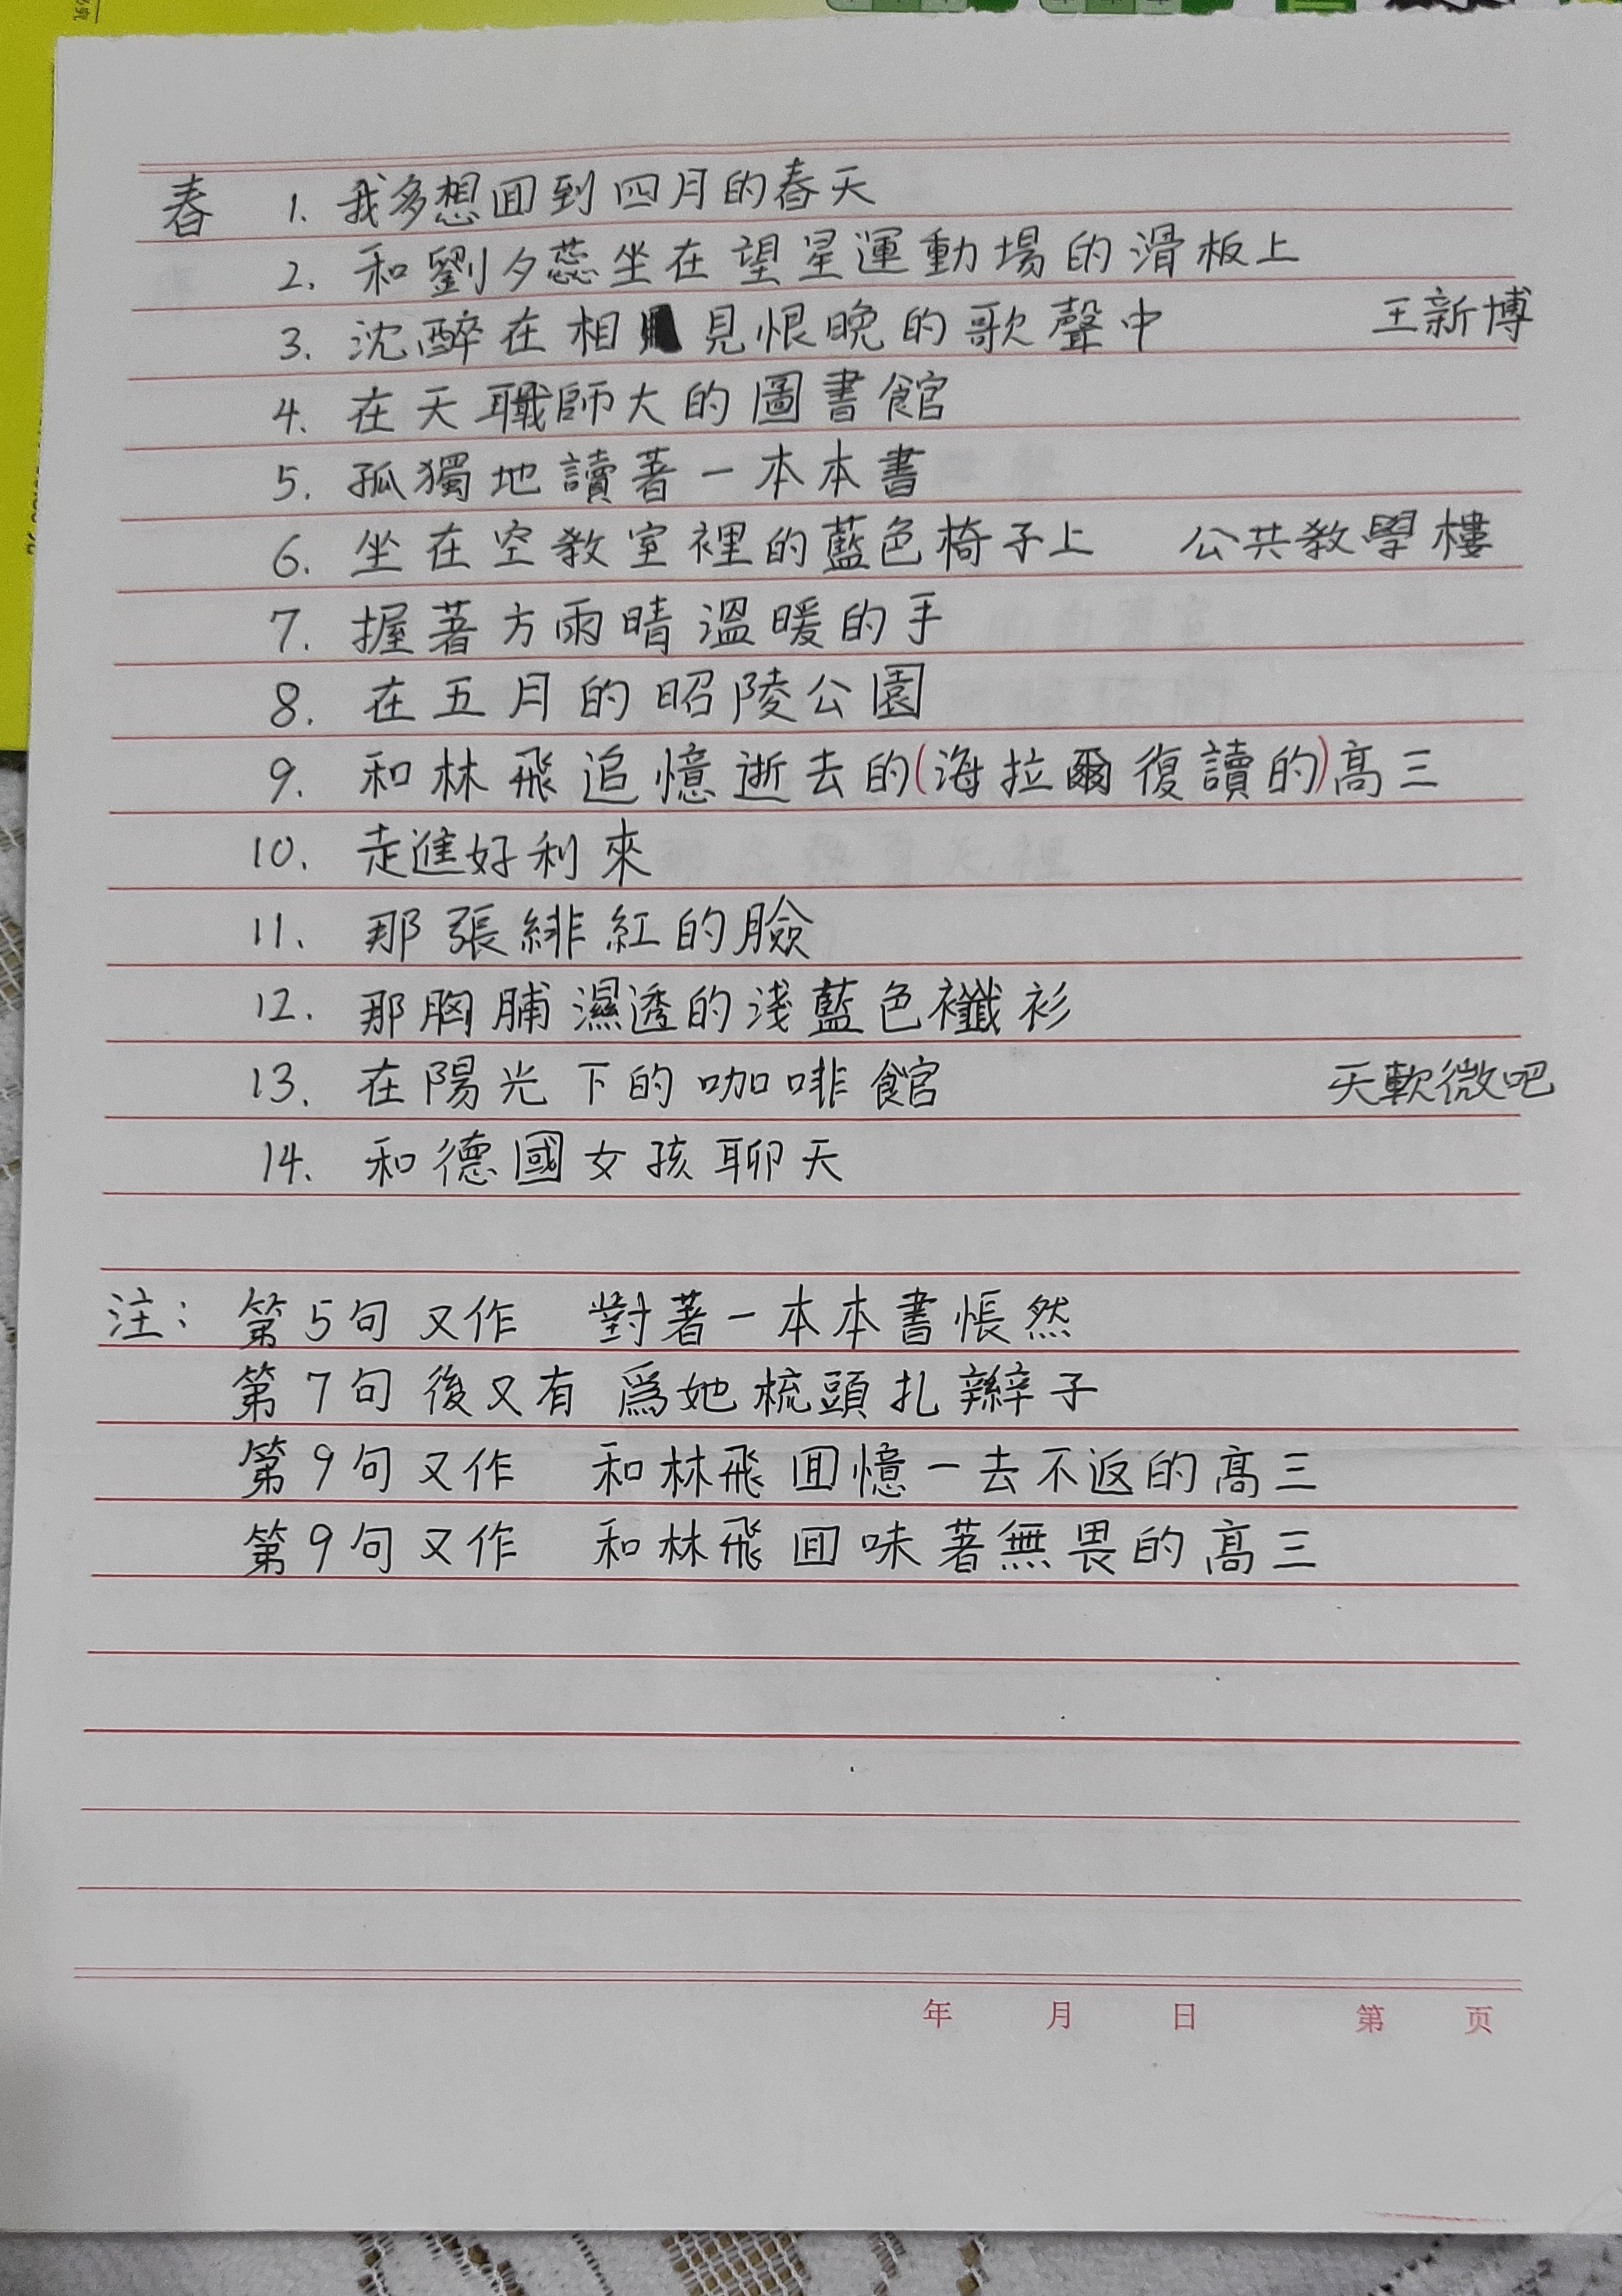 春 1. 我多想囬到四月的春天
2. 和劉夕蕊坐在望星運動場的滑板上
3. 沈醉在相見恨晚的歌聲中 王新博
4. 在天職師大的圖書館
5. 孤獨地讀著一本本書
6. 坐在空教室裡的藍色椅子上 公共教學樓
7. 握著方雨晴溫暖的手
8. 在五月的昭陵公園
9. 和林飛追憶逝去的(海拉爾復讀的)高三
10. 走進好利來
11. 那張緋紅的臉
12. 那胸脯濕透的淺藍色襳衫
13. 在陽光下的咖啡館 天軟微吧
14. 和德國女孩聊天
注: 第5句又作 對著一本本書悵然
第7句後又有 為她梳頭扎辮子
第9句又作 和林飛囬憶一去不返的高三
第9句又作 和林飛囬味著無畏的高三
年 月 日 第 页